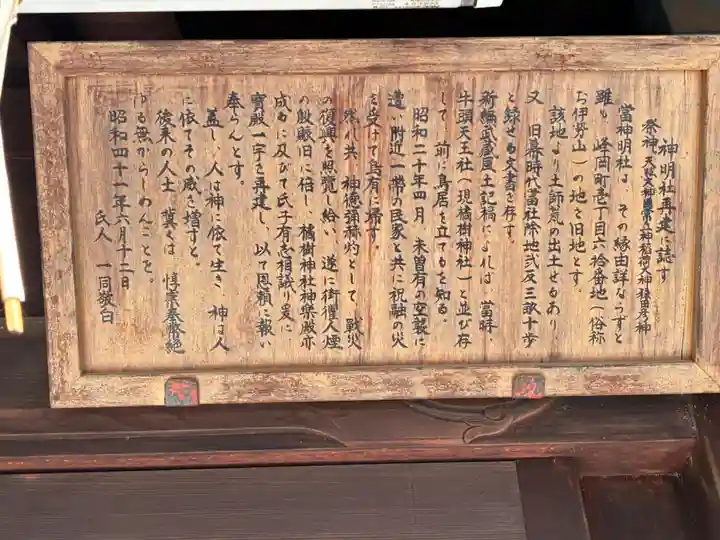 神明社再建に誌す
祭神 天照大神國常立神稲荷大神猿田彦神
當神明社は、その縁由詳ならずと
雖も、峰岡町壱丁目六拾番地（俗称
お伊勢山）の地を旧地とす。
該地より土師器の出土せるあり
又 旧幕時代當社除地弐反三畝十歩
と録せる文書を存す。
新編武蔵風土記稿によれば、當時、
牛頭天王社（現橘樹神社）と並び存
して、前に鳥居を立てもを知る。
昭和二十年四月、未曽有の空襲に
遭い附近一帯の民家と共に祝融の火
を受けて烏有に帰す。
然れ共、神徳弥赫灼として、戦火
の復興を照覧し給い、遂に街衢人煙
の殷賑旧に倍し、橘樹神社神楽殿亦
成るに及びて氏子有志相議り爰に
寶殿一宇を再建し、以て恩頼に報い
奉らんとす。
蓋し、人は神に依て生き、神は人
に依てその威を増すと。
後来の人士、冀くは、惇崇奉敬絶
ゆる無からしめんことを。
昭和四十一年六月十二日
氏人 一同敬白